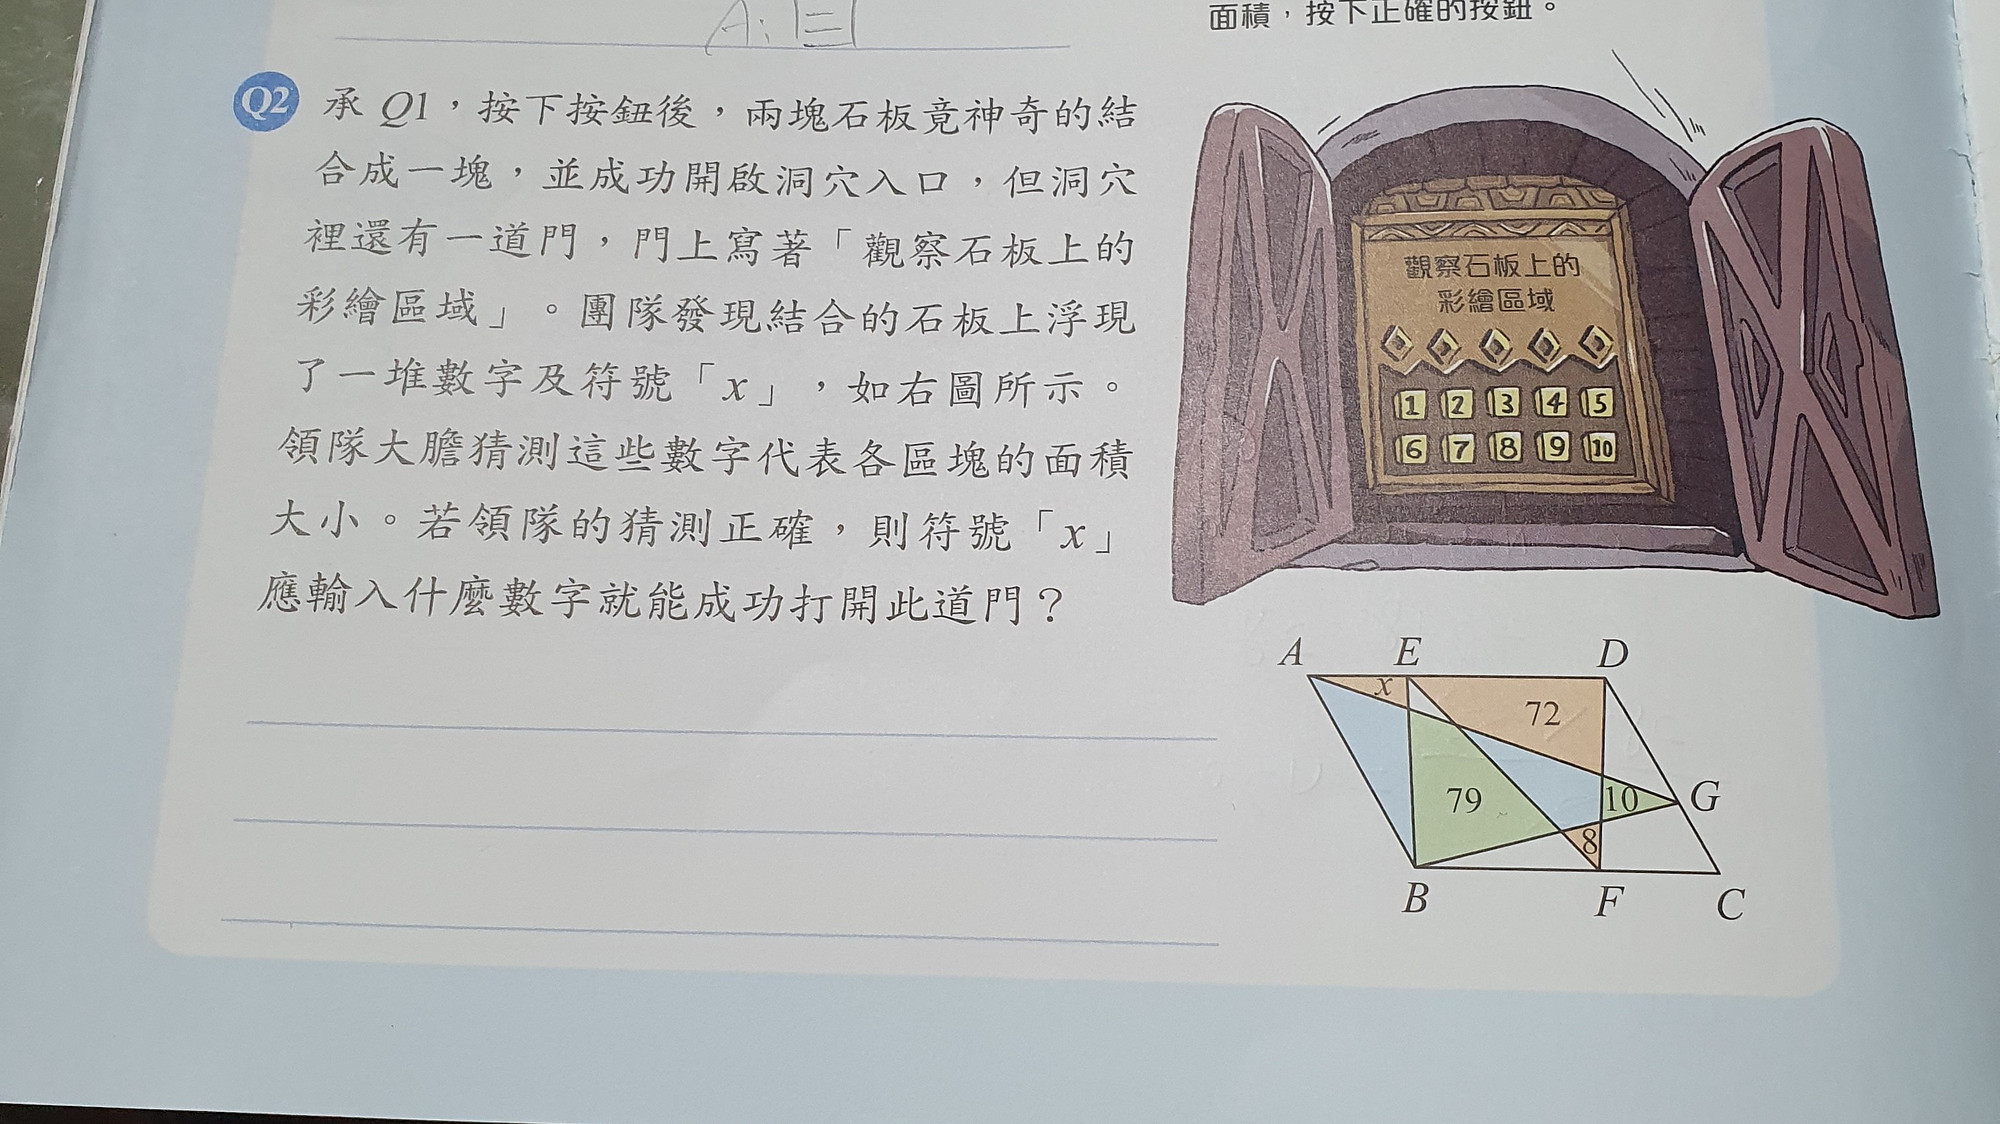 A: 三
面積，按下正確的按鈕。
Q2 承 Q1，按下按鈕後，兩塊石板竟神奇的結
合成一塊，並成功開啟洞穴入口，但洞穴
裡還有一道門，門上寫著「觀察石板上的
彩繪區域」。團隊發現結合的石板上浮現
了一堆數字及符號「x」，如右圖所示。
領隊大膽猜測這些數字代表各區塊的面積
大小。若領隊的猜測正確，則符號「x」
應輸入什麼數字就能成功打開此道門？
觀察石板上的
彩繪區域
1 2 3 4 5
6 7 8 9 10
A E D
x
72
79 10 G
8
B F C